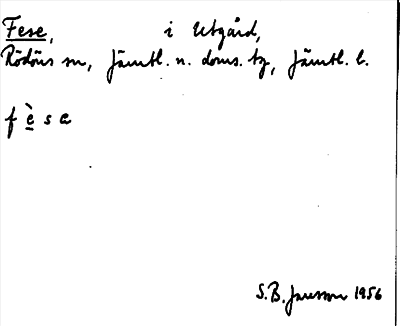 Fese, i Utgård,
Rödöns sn, Jämtl. n. doms. tg, Jämtl. l.
f è s a
S.B. Jansson 1956